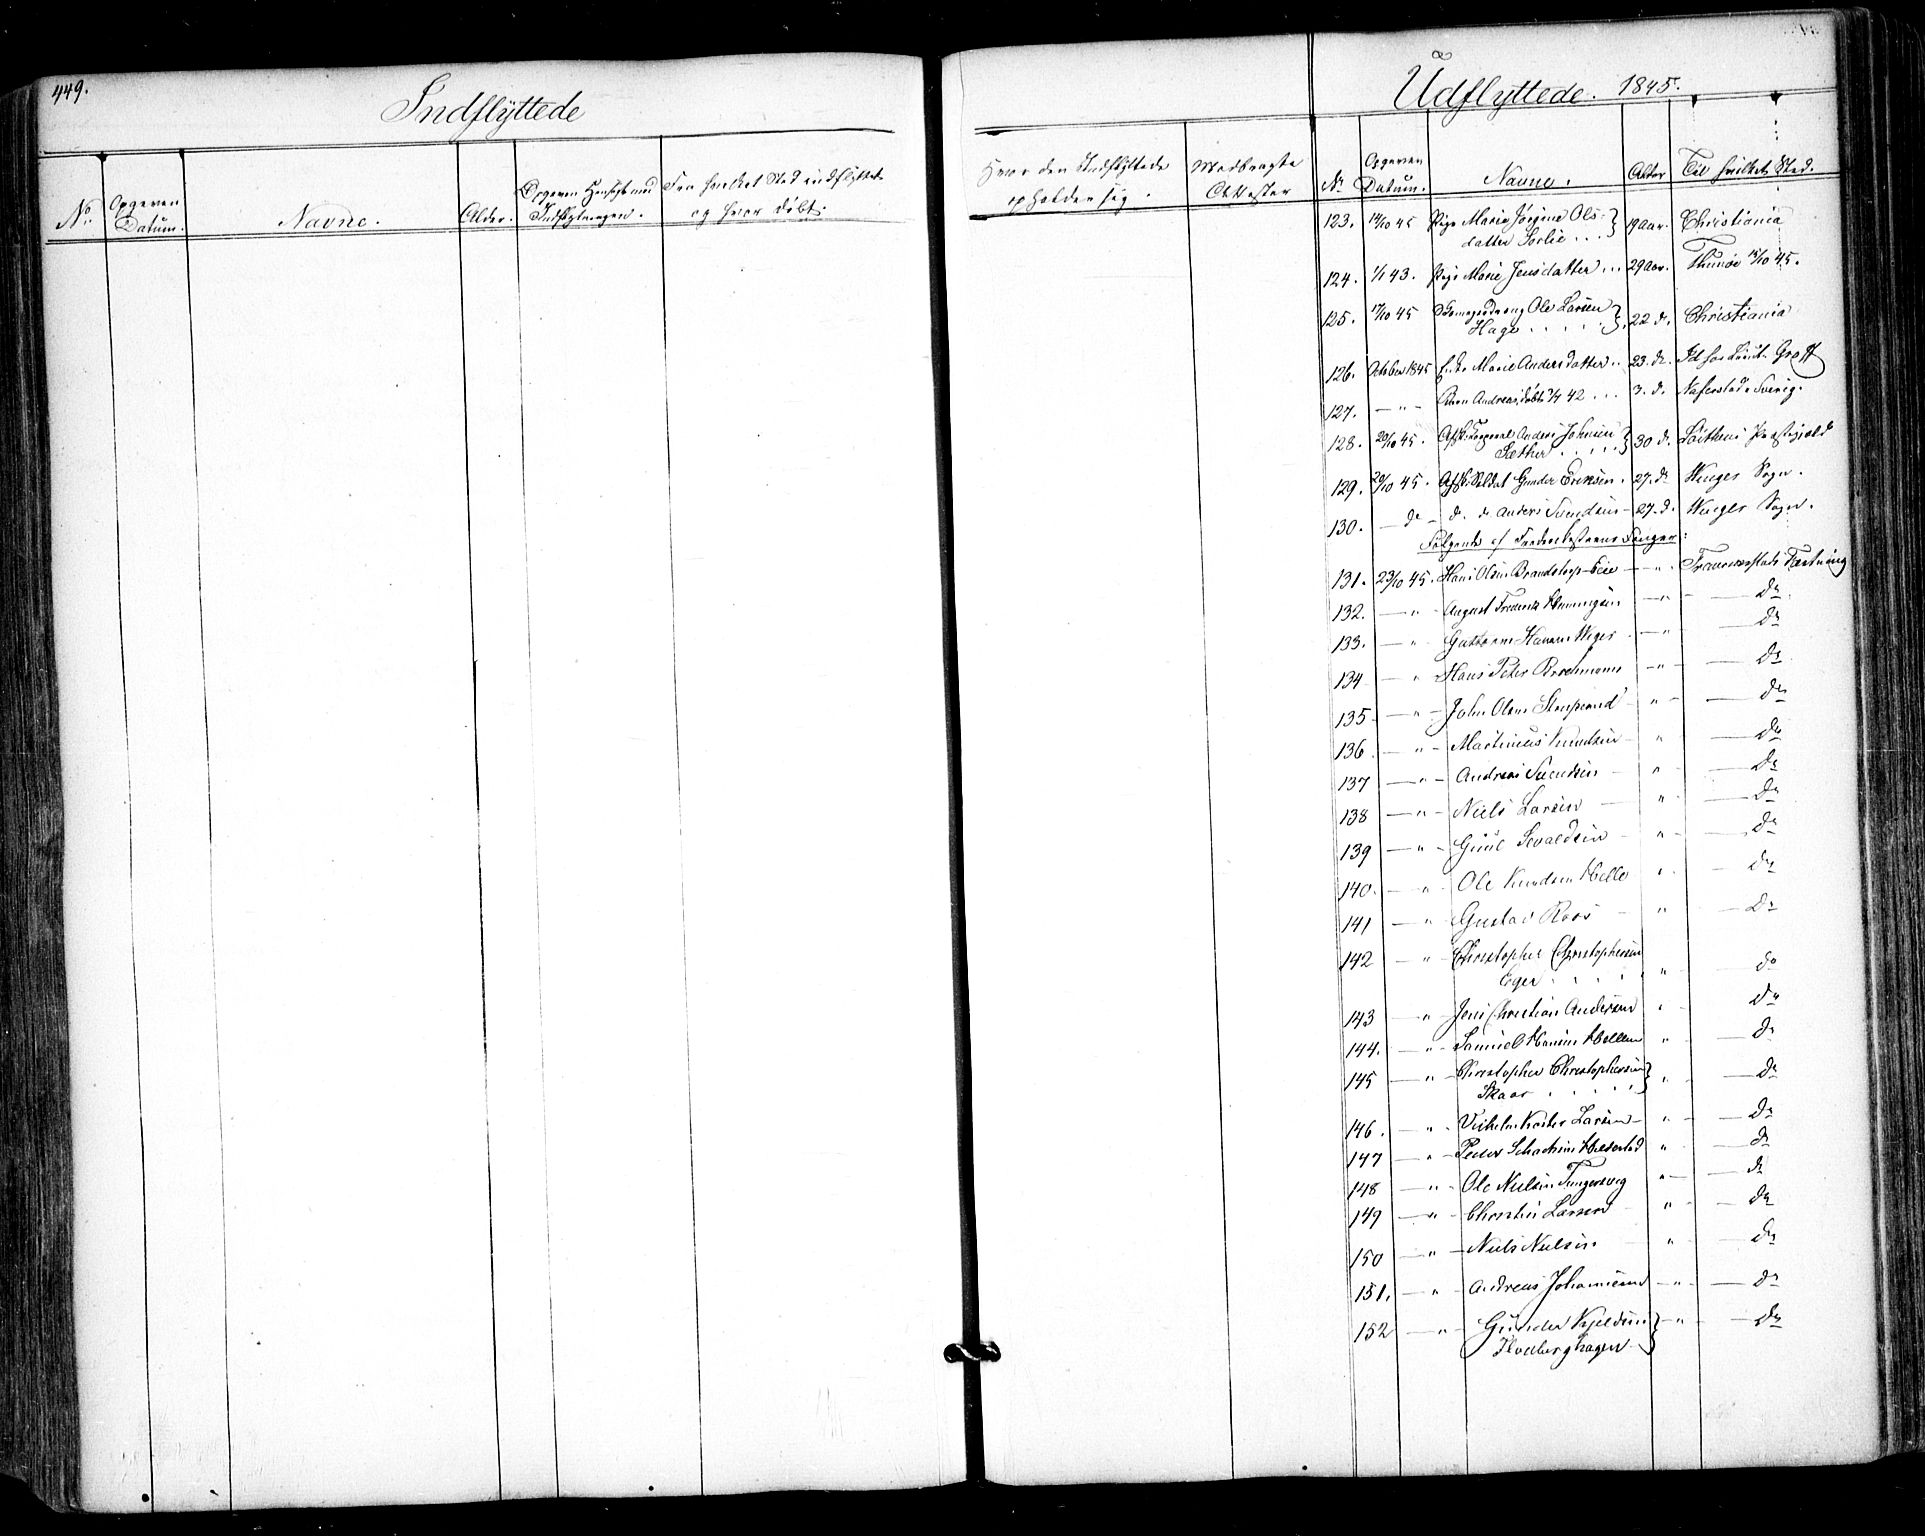 449.
Indflÿttede
No.
Opgeven
Datum.
Navne.
Alder.
Opgeven Hensigt med
Indflytningen.
Fra hvilket Sted indflyttet
og hvor døbt.
Hvor den Indflyttede
opholder sig.
Medbragte
Attester
Udflyttede. 1845.
Nr
Opgeven
Datum.
Navne.
Alder
Til hvilket Sted.
123. 14/10 45 Pige Marie Jørgine Ols-
datter Sorlie . . . 19 aar. Christiania
124. 1/1 43. Pige Marie Jensdatter . . . 29 aar. Thunøe 15/10 45.
125. 17/10 45 Ole Larsen
Hage . . . . . 22 d. Christiania
126. October 1845 Marie Andersdatter . . 23. d. Id
127. — " — Barn Andreas, døbt 3/4 42 . . . 3. d. Sverig.
128. 20/10 45. Afsk. Corporal Anders Johnsen
Sæther . . . . . 30 d. Løithens Præstegjeld
129. 20/10 45. Afsk. Soldat Gunder Eriksen . 27. d. Winger Sogn.
130. — d — d. d. Anders Svendsen — 27. d. Winger Sogn.
Følgende af Fanger:
131. 23/10 45. Hans Olsen Brandstorp-Eie — " Fæstning
132. — " August Frederik Hemmingsen — " — d
133. — " Guttorm Hansen Weger — " — d
134 — " Hans Peter — " — d
135 — " — John Olsen — " — d
136 — " — Martinius Knudsen — " — d
137 — " — Andreas Svendsen — " — d
138 — " — Niels Larsen — " — d
139 — " — Guul Sevaldsen — " — d
140. — " — Ole Knudsen Helle " — d
141 — " Gustav Roos — " — d
142 — " Christopher Christophersen
Eger . . . . " — d
143 — " Jens Christian Andersen " — d
144. — " — Samuel Hellem " — d
145 — " — Christopher Christophersen
Skaar . . . . . " — d
146. — " — Vilhelm Larsen — " — d
147 — " — Peder " — d
148 — " — Ole Nielsen " — d
149 — " — Christen Larsen — " — d
150 — " — Niels Nielsen — " — d
151. — " — Andreas Johannesen — " — d
152 — " — Gunder Kjeldsen
Hvalberghagen — " — d